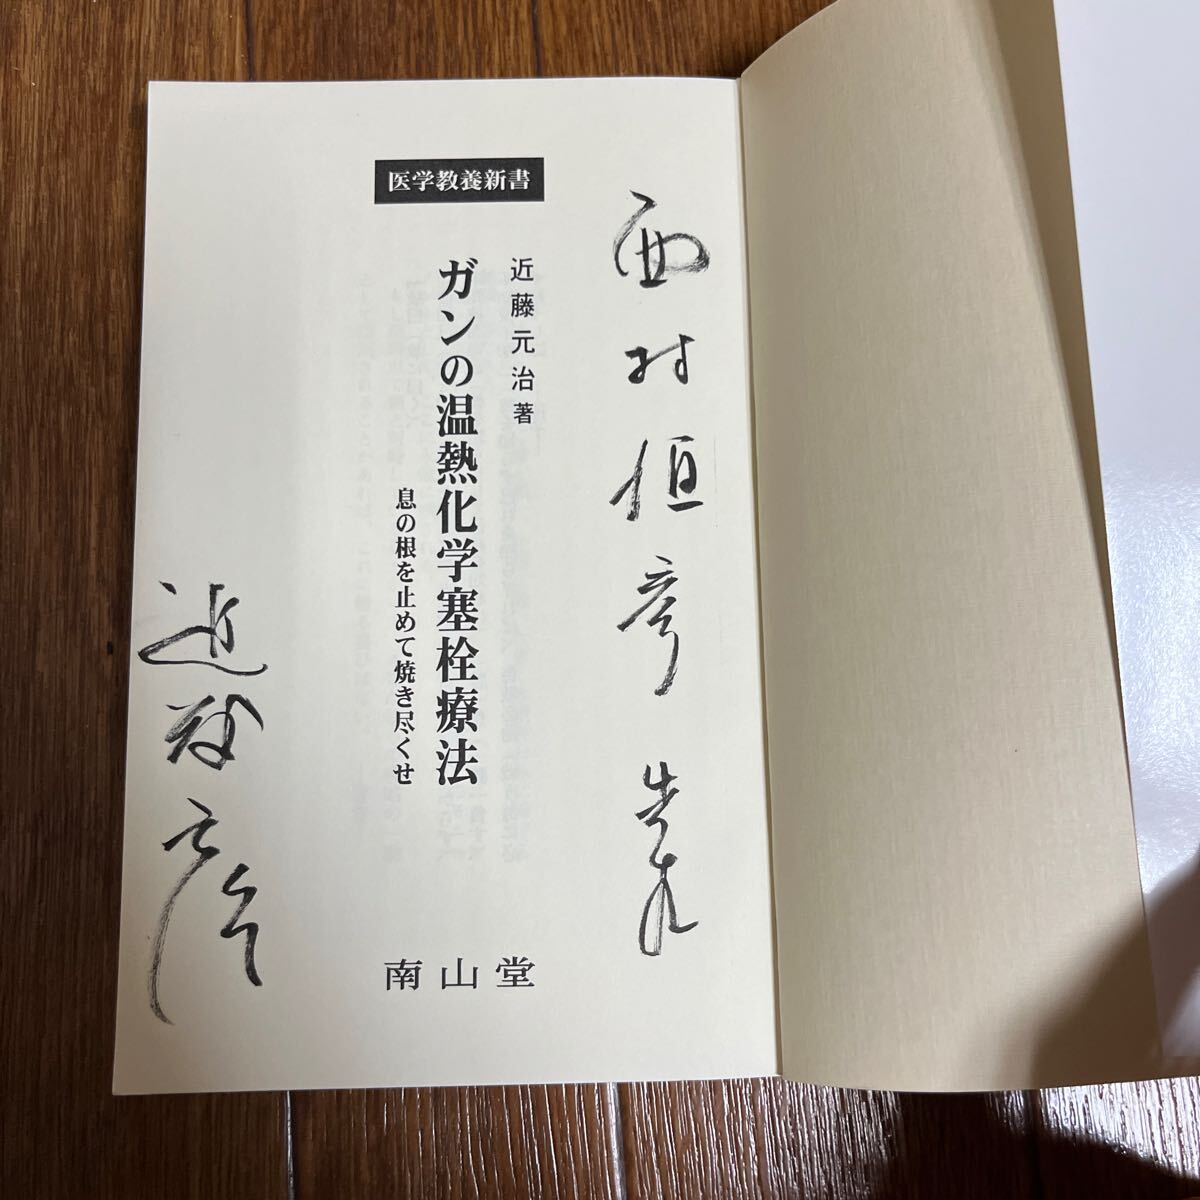 西村恒彦先生
医学教養新書
近藤元治著
ガンの温熱化学塞栓療法
息の根を止めて焼き尽くせ
南山堂
近藤元治